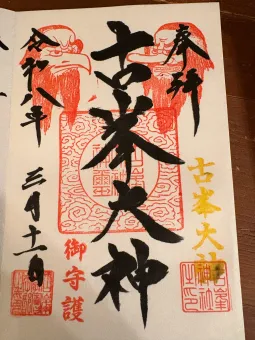 奉拝
古峯大神
古峯大神
御守護
令和八年
三月十一日